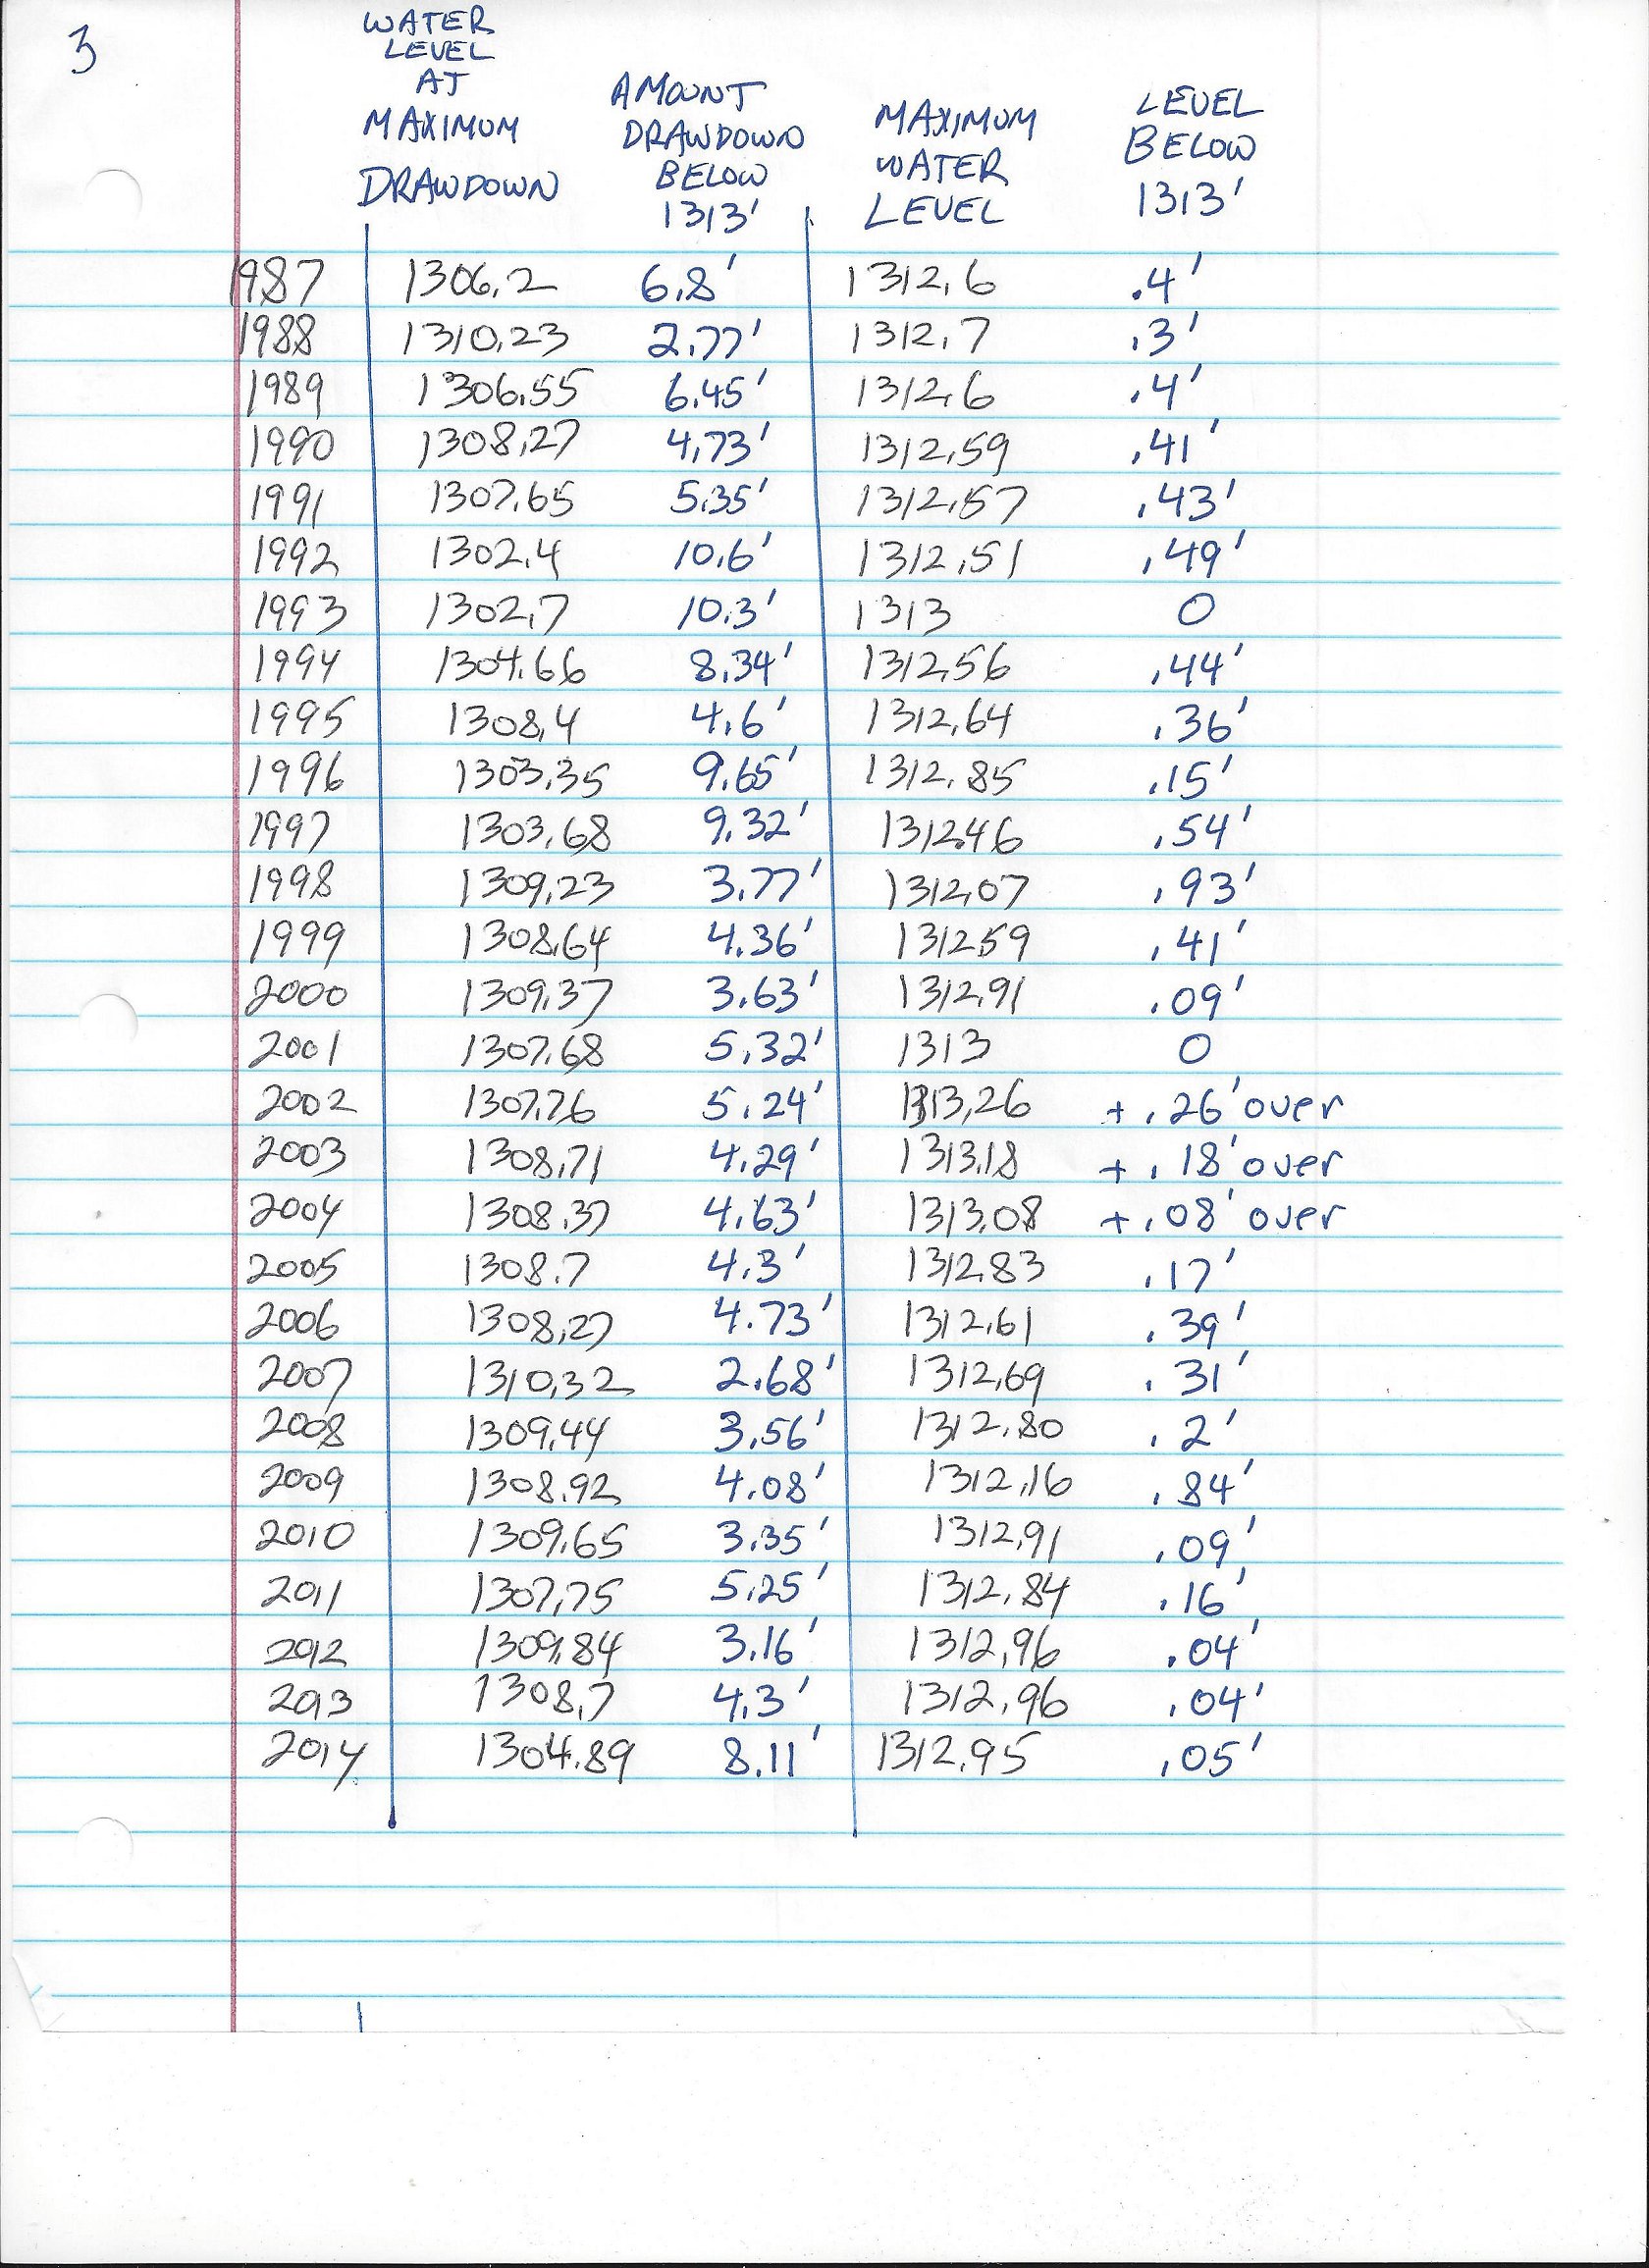 3
WATER LEVEL AT MAXIMUM DRAWDOWN
AMOUNT DRAWDOWN BELOW 1313'
MAXIMUM WATER LEVEL
LEVEL BELOW 1313'
1987 1306.2 6.8' 1312.6 .4'
1988 1310.23 2.77' 1312.7 .3'
1989 1306.55 6.45' 1312.6 .4'
1990 1308.27 4.73' 1312.59 .41'
1991 1307.65 5.35' 1312.57 .43'
1992 1302.4 10.6' 1312.51 .49'
1993 1302.7 10.3' 1313 0
1994 1304.66 8.34' 1312.56 .44'
1995 1308.4 4.6' 1312.64 .36'
1996 1303.35 9.65' 1312.85 .15'
1997 1303.68 9.32' 1312.46 .54'
1998 1309.23 3.77' 1312.07 .93'
1999 1308.64 4.36' 1312.59 .41'
2000 1309.37 3.63' 1312.91 .09'
2001 1307.68 5.32' 1313 0
2002 1307.76 5.24' 1313.26 + .26' over
2003 1308.71 4.29' 1313.18 + .18' over
2004 1308.37 4.63' 1313.08 + .08' over
2005 1308.7 4.3' 1312.83 .17'
2006 1308.27 4.73' 1312.61 .39'
2007 1310.32 2.68' 1312.69 .31'
2008 1309.44 3.56' 1312.80 .2'
2009 1308.92 4.08' 1312.16 .84'
2010 1309.65 3.35' 1312.91 .09'
2011 1307.75 5.25' 1312.84 .16'
2012 1309.84 3.16' 1312.96 .04'
2013 1308.7 4.3' 1312.96 .04'
2014 1304.89 8.11' 1312.95 .05'